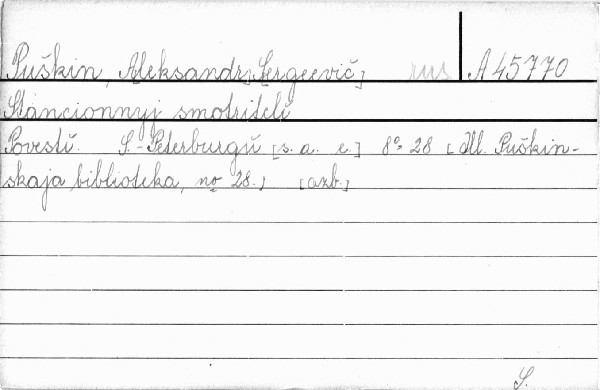 Puškin, Aleksandr [Sergeevič] rus A 45770
Stancionnyj smotriteli
Povesti. S.-Peterburgŭ [s. a. e.] 8° 28 [Ill. Puškin-
skaja biblioteka, no 28.) [azb.]
S.